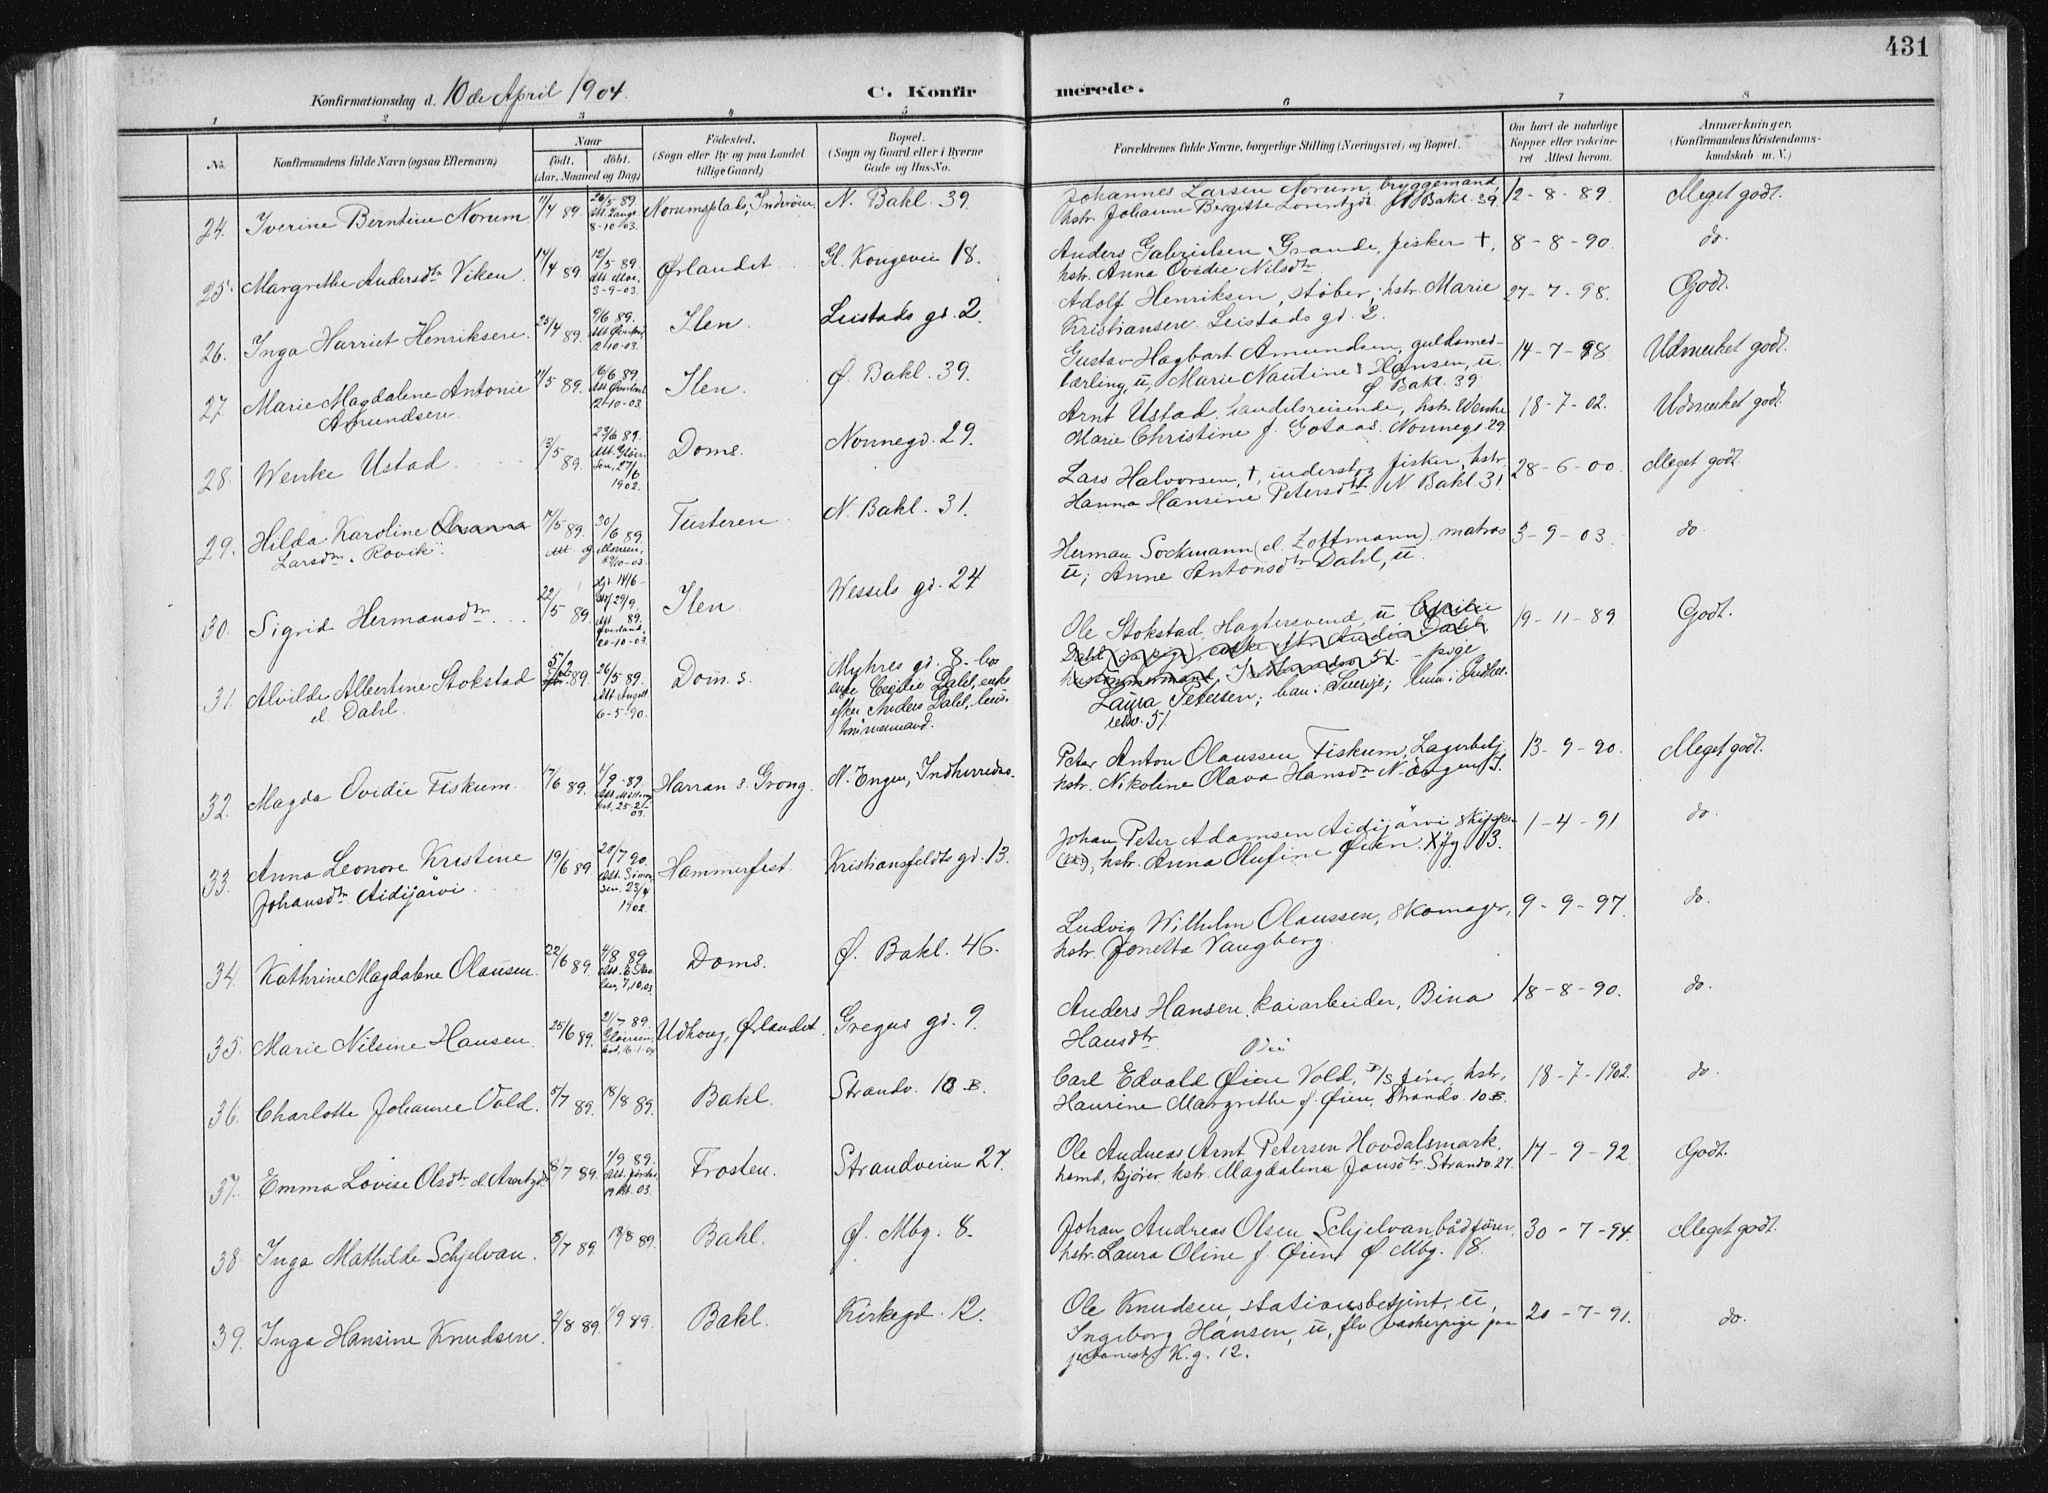 431
Konfirmationsdag d. 10de April 1904.
C. Konfirmerede.
1 2 3 4 5 6 7 8
No.
Konfirmandens fulde Navn (ogsaa Efternavn)
Naar
født. døbt.
(Aar, Maaned og Dag)
Fødested.
(Sogn eller By og paa Landet
tillige Gaard)
Bopæl.
(Sogn og Gaard eller i Byerne
Gade og Hus-No.
Forældrenes fulde Navne, borgerlige Stilling (Næringsvei) og Bopæl.
Om havt de naturlige
Kopper eller vaccineret
Attest herom.
Anmærkninger.
(Konfirmandens Kristendomskundskab
m. V.)
24. Iverine Berntine Norum 11/4 89. 26/5 89. 8-10-03. Norumsplads, Inderøen N. Bakl. 39.
Johannes Larsen Norum, bryggemand, 12-8-89 Meget godt.
hstr. Johanne Bergitte Lorentzdt. N Bakl. 39
25. Margrethe Andersdtr Viken. 14/4 89 12/5 89. Att. Moe, 3-9-03. Ørlandet Gl. Kongevei 18.
Anders Gabrielsen Grande, fisker †, 8-8-90. do.
hstr. Anna Ovidie Nilsdtr
26. Inga Harriet Henriksen. 25/4 89 9/6 89. 12-10-03. Ilen. Leistads gd. 2.
Adolf Henriksen, støber, hstr. Marie 27-7-98. Godt.
Kristiansen. Leistads gd. 2.
27 Marie Magdalene Antonie 11/5 89. 16/6 89. 12-10-03. Ilen. Ø. Bakl. 39.
Amundsen.
Gustav Hagbart Amundsen, guldsmed- 14-7-98 Udmerket godt.
lærling, u, Marie Nautine Hansen, u.
Ø Bakl. 39
28. Wenke Ustad. 13/5 89. 23/6 89. 27/6 1902. Doms. Nonnegd. 29.
Arnt Ustad, handelsreisende, hstr. Wenke 18-7-02. Udmerket godt.
Marie Christine f. Gotaas. Nonnegd. 29
29. Hilda Karoline 17/5 89. 30/6 89. Tusteren N. Bakl. 31.
Larsdtr. Rovik.
Lars Halvorsen, †, inderst og fisker, hstr. 28-6-00. Meget godt.
Hanna Hansine Petersdtr. N Bakl 31
30. Sigrid Hermansdtr 22/5 89. 14/6 29/9 89. 20-10-03. Ilen. Wessels gd. 24
Herman Sockmann (el. Zoffmann) matros 3-9-03. do
u; Anne Antonsdtr Dahl, u.
31. Alvilde Albertine Stokstad 5/2 89. 26/5 89. 6-5-90. Dom. s. Myhres gd. 8 - hos
el Dahl.
enke Cecilie Dahl, enke
efter Anders Dahl,
tømmermand.
Ole Stokstad, Hagtersvend, u, 19-11-89 Godt.
pige
Laura Petersen; han i Sverige;
51.
32. Magda Ovidie Fiskum. 7/6 89. 1/9-89. Harran s. Grong. N. Engen, Indherredsv.
Peter Anton Olaussen Fiskum, Lagerbetj. 13-9-90. Meget godt.
hstr. Nikoline Olava Hansdtr N. Engen I.
33. Anna Leonore Kristine 19/6 89. 20/7 90. 23/4 1902. Hammerfest. Kristiansfeldts gd. 13.
Johansdtr Aidijärvi
Johan Peter Adamsen Aidijärvi skipper 1-4-91 do.
hstr. Anna Olufine Øien. Xfg. 13.
34. Kathrine Magdalene Olausen. 22/6 89. 4/8 89. Doms. Ø. Bakl. 46.
Ludvig Wilhelm Olaussen, skomager, 9-9-97. do.
hstr. Jonetta Vangberg.
35. Marie Nilsine Hansen. 25/6 89. 21/7 89. Udhoug, Ørlandet. Gregus gd. 9.
Anders Hansen, kaiarbeider, Bina 18-8-90. do.
Hansdtr.
36. Charlotte Johanne Vold. 5/7 89. 18/8 89. Bakl. Strandv. 10 B.
Carl Edvald Øien Vold, D/S fører, hstr, 18-7-1902. do.
Haurine Margrethe f. Øien, Strandv. 10B.
37. Emma Lovise Olsdtr el Arntzdtr 8/7 89. 1/9 89. Frosten. Strandveien 27.
Ole Andreas Arnt Petersen Hovdalsmark 17-9-92. Godt.
kjører, hstr. Magdalena Jonsdtr. Strandv. 27.
38. Inga Mathilde Schjelvan. 8/7 89. 18/8 89. Bakl. Ø. Mbg. 8.
Johan Andreas Olsen Schjelvan bådfører, 30-7-94. Meget godt.
hstr. Laura Oline f. Øien Ø Mbg. 8.
39. Inga Hansine Knudsen. 2/8 89. 1/9 89. Bakl. Kirkegd. 12.
Ole Knudsen, stationsbetjent, u, 20-7-91. do.
Ingeborg Hansen, u, vaskerpige paa
K.g. 12.